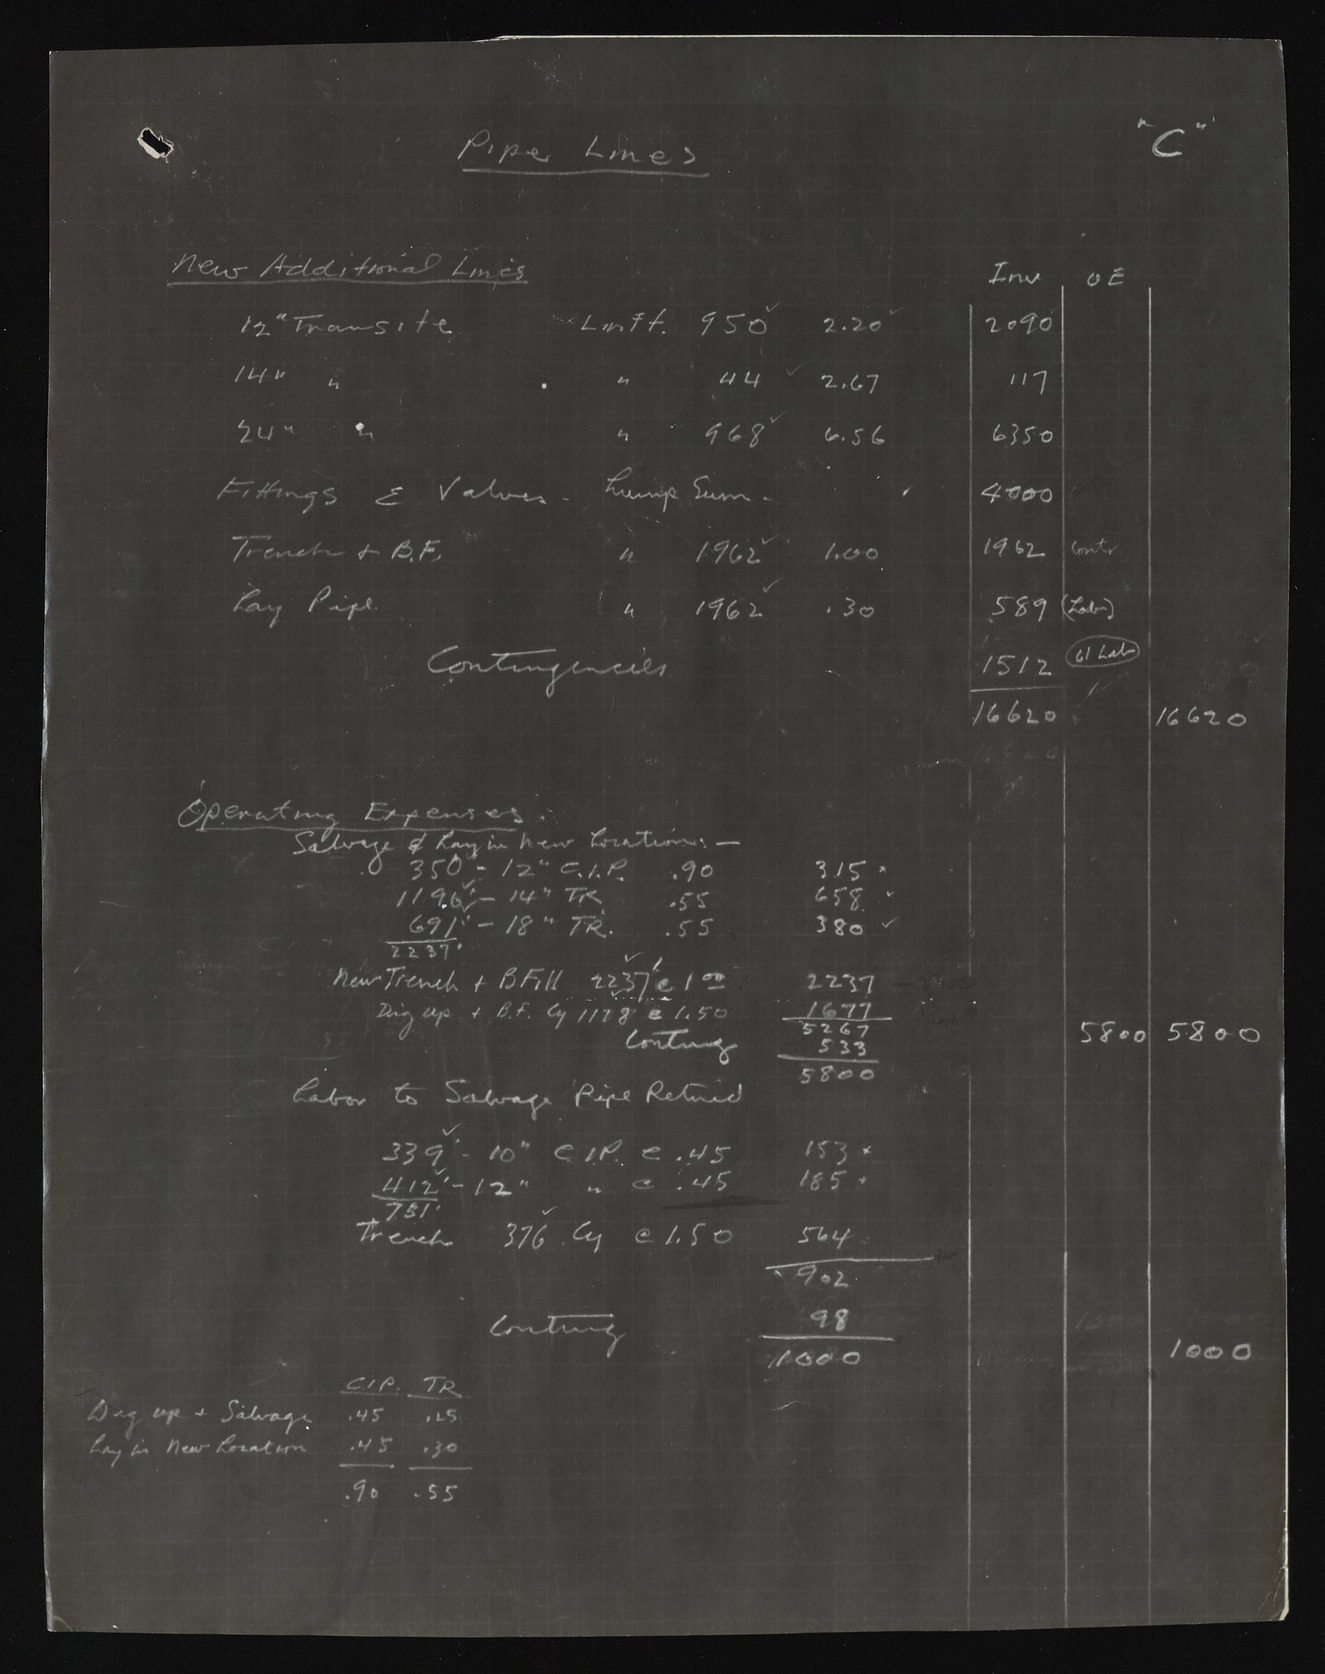 "C"
Pipe Lines
New Additional Lines Inv OE
12" Transite Lin Ft. 950 2.20 2090
14" " " 44 2.67 117
24" " " 968 6.56 6350
Fittings & Valves - Lump Sum - 4000
Trench + B.F. " 1962 1.00 1962 Contr
Lay Pipe " 1962 .30 589 (Labor)
Contingencies 1512 61 Labor
16620 16620
Operating Expenses:
Salvage & Lay in New Location: —
350' - 12" C.I.P. .90 315
1196' - 14" TR .55 658
691' - 18" TR. .55 380
2237'
New Trench + B Fill 2237' @ 1 00 2237
Dig up + B.F. Cy 1118 @ 1.50 1677
5267
Conting 533 5800 5800
5800
Labor to Salvage Pipe Retired
339' - 10" C.I.P. @ .45 153
412' - 12" " @ .45 185
751'
Trench 376 Cy @ 1.50 564
902
Conting 98
1000 1000
C.I.P. TR
Dig up + Salvage .45 .25
Lay in New Location .45 .30
.90 .55